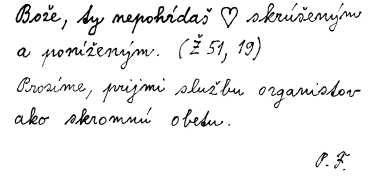 Bože, ty nepohŕdaš ♡ skrúšeným
a poníženým. (Ž 51, 19)
Prosíme, prijmi službu organistov
ako skromnú obetu.
P. F.